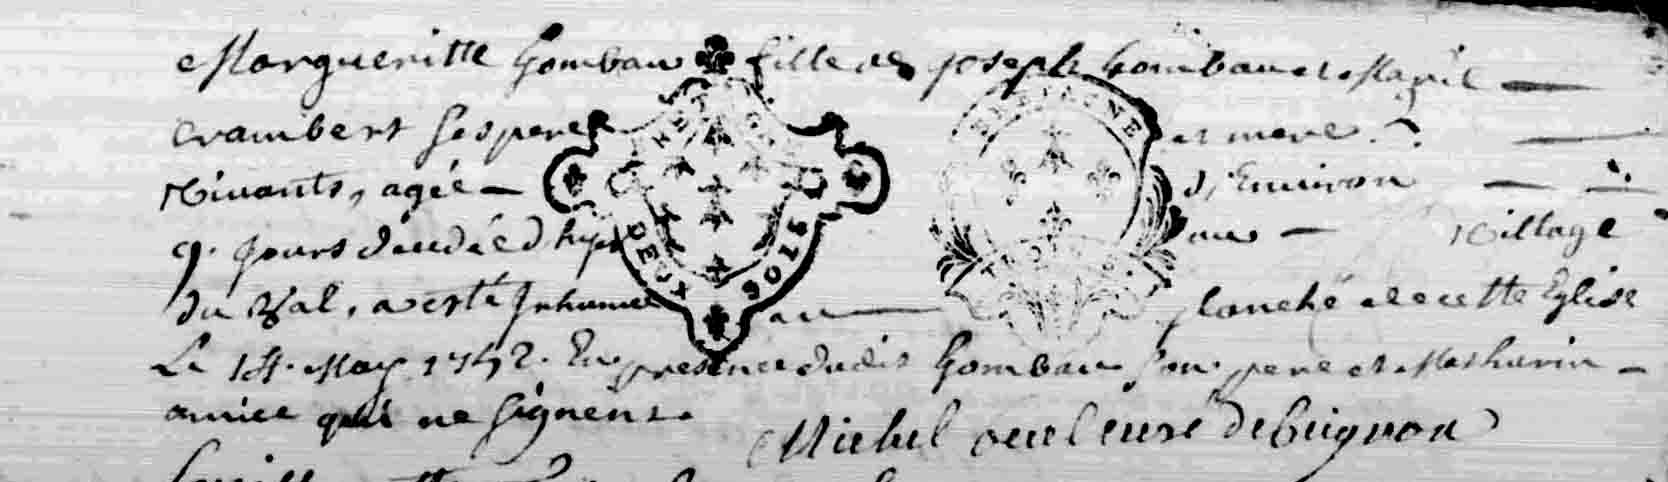 Margueritte Gombau fille de Joseph Gombau et Marie
Crambert ses pere et mere
vivants, agée d'Environ
9. jours decedée d'hyer au village
du Val, a esté Inhumée au planché de cette Eglise
Le 14. May 1742. En presence dudit Gombau son pere et Mathurin
amice qui ne signent.
Michel curé de Guignon
BRETAGNE
DEUX SOLS
BRETAGNE